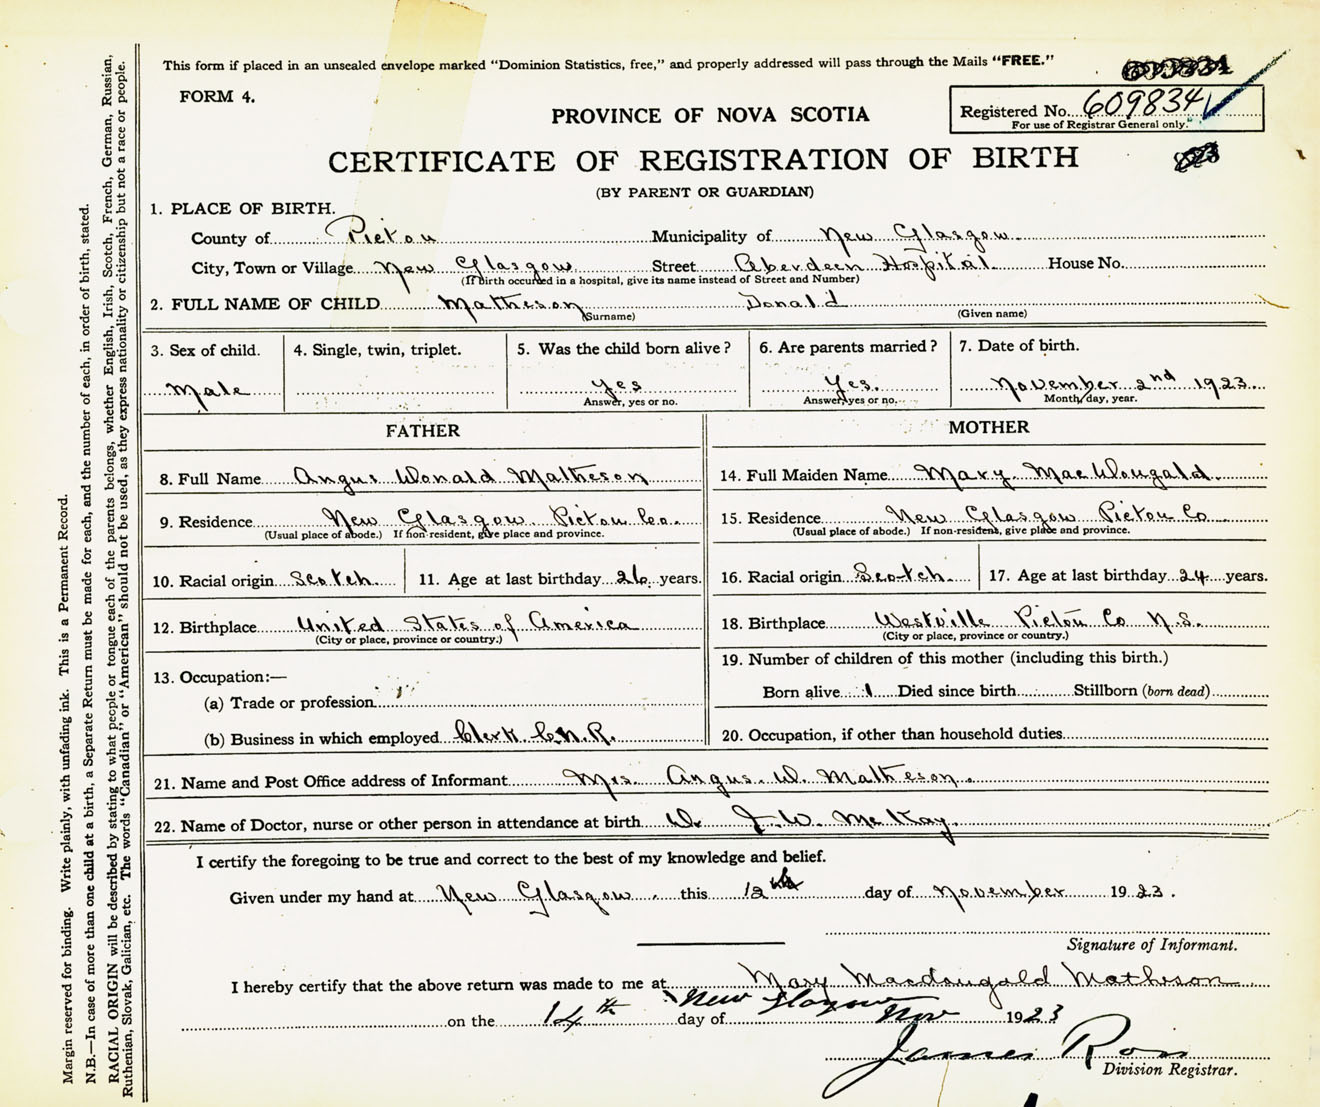 This form if placed in an unsealed envelope marked "Dominion Statistics, free," and properly addressed will pass through the Mails "FREE."
FORM 4.
Registered No. 609834
For use of Registrar General only.
PROVINCE OF NOVA SCOTIA
CERTIFICATE OF REGISTRATION OF BIRTH
(BY PARENT OR GUARDIAN)
1. PLACE OF BIRTH.
County of Pictou Municipality of New Glasgow
City, Town or Village New Glasgow Street Aberdeen Hospital House No.
(If birth occurred in a hospital, give its name instead of Street and Number)
2. FULL NAME OF CHILD Matheson Donald
(Surname) (Given name)
3. Sex of child. 4. Single, twin, triplet. 5. Was the child born alive? 6. Are parents married? 7. Date of birth.
Male Yes Yes. November 2nd 1923
Answer, yes or no. Answer, yes or no. Month, day, year.
FATHER MOTHER
8. Full Name Angus Donald Matheson 14. Full Maiden Name Mary MacDougald
9. Residence New Glasgow Pictou Co. 15. Residence New Glasgow Pictou Co
(Usual place of abode.) If non resident, give place and province. (Usual place of abode.) If non-resident, give place and province.
10. Racial origin Scotch 11. Age at last birthday 26 years. 16. Racial origin Scotch 17. Age at last birthday 24 years.
12. Birthplace United States of America 18. Birthplace Westville Pictou Co N.S.
(City or place, province or country.) (City or place, province or country.)
13. Occupation:— 19. Number of children of this mother (including this birth.)
(a) Trade or profession Born alive 1 Died since birth Stillborn (born dead)
(b) Business in which employed Clerk C.N.R. 20. Occupation, if other than household duties
21. Name and Post Office address of Informant Mrs. Angus D. Matheson.
22. Name of Doctor, nurse or other person in attendance at birth J.W. McKay
I certify the foregoing to be true and correct to the best of my knowledge and belief.
Given under my hand at New Glasgow, this 12th day of November 1923.
Signature of Informant.
I hereby certify that the above return was made to me at Mary Macdougald Matheson
New Glasgow
on the 14th day of Nov 1923
James Ross
Division Registrar.
Margin reserved for binding. Write plainly, with unfading ink. This is a Permanent Record.
N.B.—In case of more than one child at a birth, a Separate Return must be made for each, and the number of each, in order of birth, stated.
RACIAL ORIGIN will be described by stating to what people or tongue each of the parents belongs, whether English, Irish, Scotch, French, German, Russian,
Ruthenian, Slovak, Galician, etc. The words "Canadian" or "American" should not be used, as they express nationality or citizenship but not a race or people.